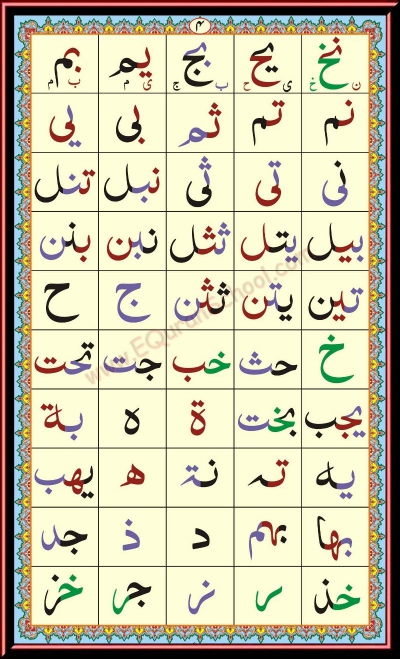 ۴
نخ یح بج یم بم
ن خ ی ح ب ج ی م ب م
نم تم ثم بی یی
نی تی ثی نبل تنل
بیل یتل ثثل نبن بنن
تین یتن ثثن ج ح
خ حث خب جت تحت
یجب بخت ة ہ بة
یہ تہ نة ھ یهب
بها بهم د ذ جد
خذ ر ز جر خز
www.EQuranSchool.com